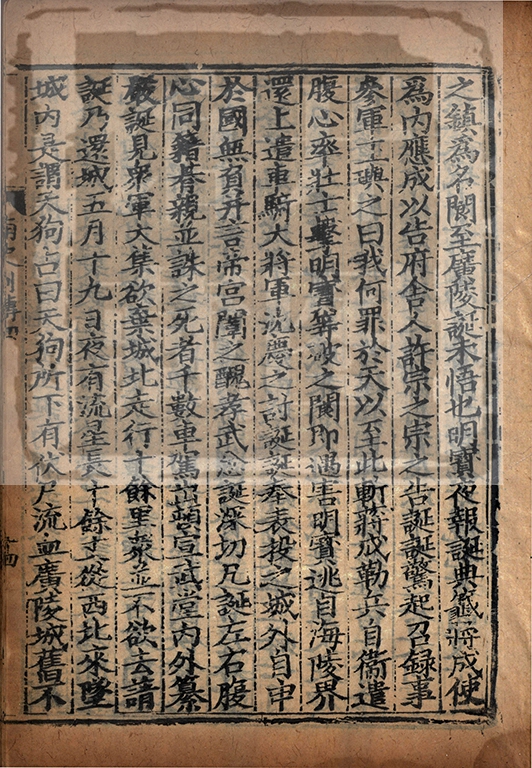 之鎮爲名閑至廣陵誕未悟也明寶夜報誕典籤蔣成使
爲内應成以告府舍人許宗之宗之告誕誕驚起召録事
參軍王璵之曰我何罪於天以至此斬蔣成勒兵自衛遣
腹心率壯士擊明寶等破之閑即遇害明寶逃自海陵界
還上遣車騎大將軍沈慶之討誕誕奉表投之城外自申
於國無負并言帝宮闈之醜孝武忿誕深切凡誕左右腹
心同籍朞親並誅之死者千數車駕出頓宣武堂内外纂
嚴誕見衆軍大集欲棄城北走行十餘里衆並不欲去請
誕乃還城五月十九日夜有流星長十餘丈從西北來墜
城内是謂天狗占曰天狗所下有伏尸流血廣陵城舊不